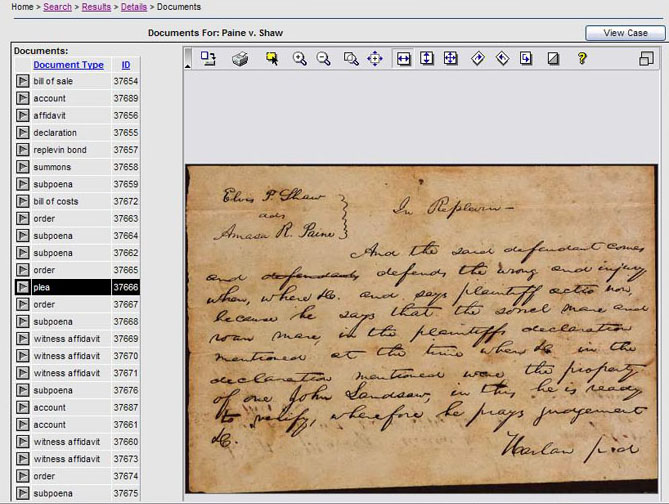 Home > Search > Results > Details > Documents
Documents For: Paine v. Shaw
View Case
Documents:
Document Type ID
bill of sale 37654
account 37689
affidavit 37656
declaration 37655
replevin bond 37657
summons 37658
subpoena 37659
bill of costs 37672
order 37663
subpoena 37664
subpoena 37662
order 37665
plea 37666
order 37667
subpoena 37668
witness affidavit 37669
witness affidavit 37670
witness affidavit 37671
subpoena 37676
account 37687
account 37661
witness affidavit 37660
witness affidavit 37673
order 37674
subpoena 37675
Elvis P. Shaw
ads
Amasa R. Paine
In Replevin
And the said defendant comes
and defendants defends the wrong and injury
when, where &c. and says plaintiff actio non,
because he says that the sorrel mare and
roan mare, in the plaintiffs declaration
mentioned at the time when &c in the
declaration mentioned were the property
of one John, in this he is ready
to verify, wherefore he prays judgement
&c.
Harlan